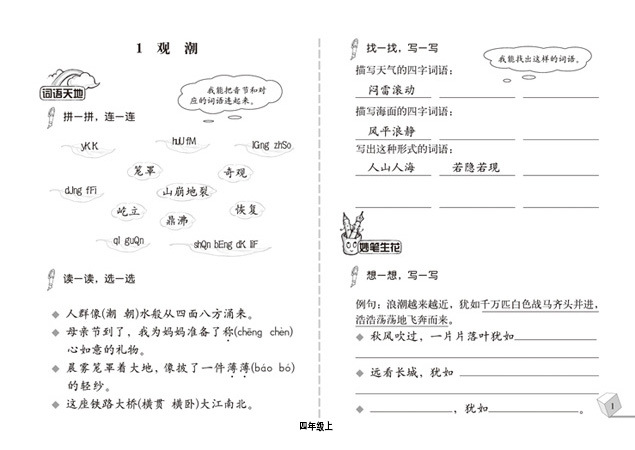 1 观 潮
词语天地
我能把音节和对
应的词语连起来。
拼一拼，连一连
yK K
huU fM
lGng zhSo
笼罩
奇观
dJng fFi
山崩地裂
屹立
鼎沸
恢复
qI guQn
shQn bEng dK liF
读一读，选一选
◆ 人群像(潮 朝)水般从四面八方涌来。
◆ 母亲节到了，我为妈妈准备了称(chēng chèn)
心如意的礼物。
◆ 晨雾笼罩着大地，像披了一件薄薄(báo bó)
的轻纱。
◆ 这座铁路大桥(横贯 横卧)大江南北。
找一找，写一写
我能找出这样的词语。
描写天气的四字词语：
闷雷滚动
描写海面的四字词语：
风平浪静
写出这种形式的词语：
人山人海 若隐若现
妙笔生花
想一想，写一写
例句：浪潮越来越近，犹如千万匹白色战马齐头并进，
浩浩荡荡地飞奔而来。
◆ 秋风吹过，一片片落叶犹如
◆ 远看长城，犹如
◆ ，犹如 。
1
四年级上